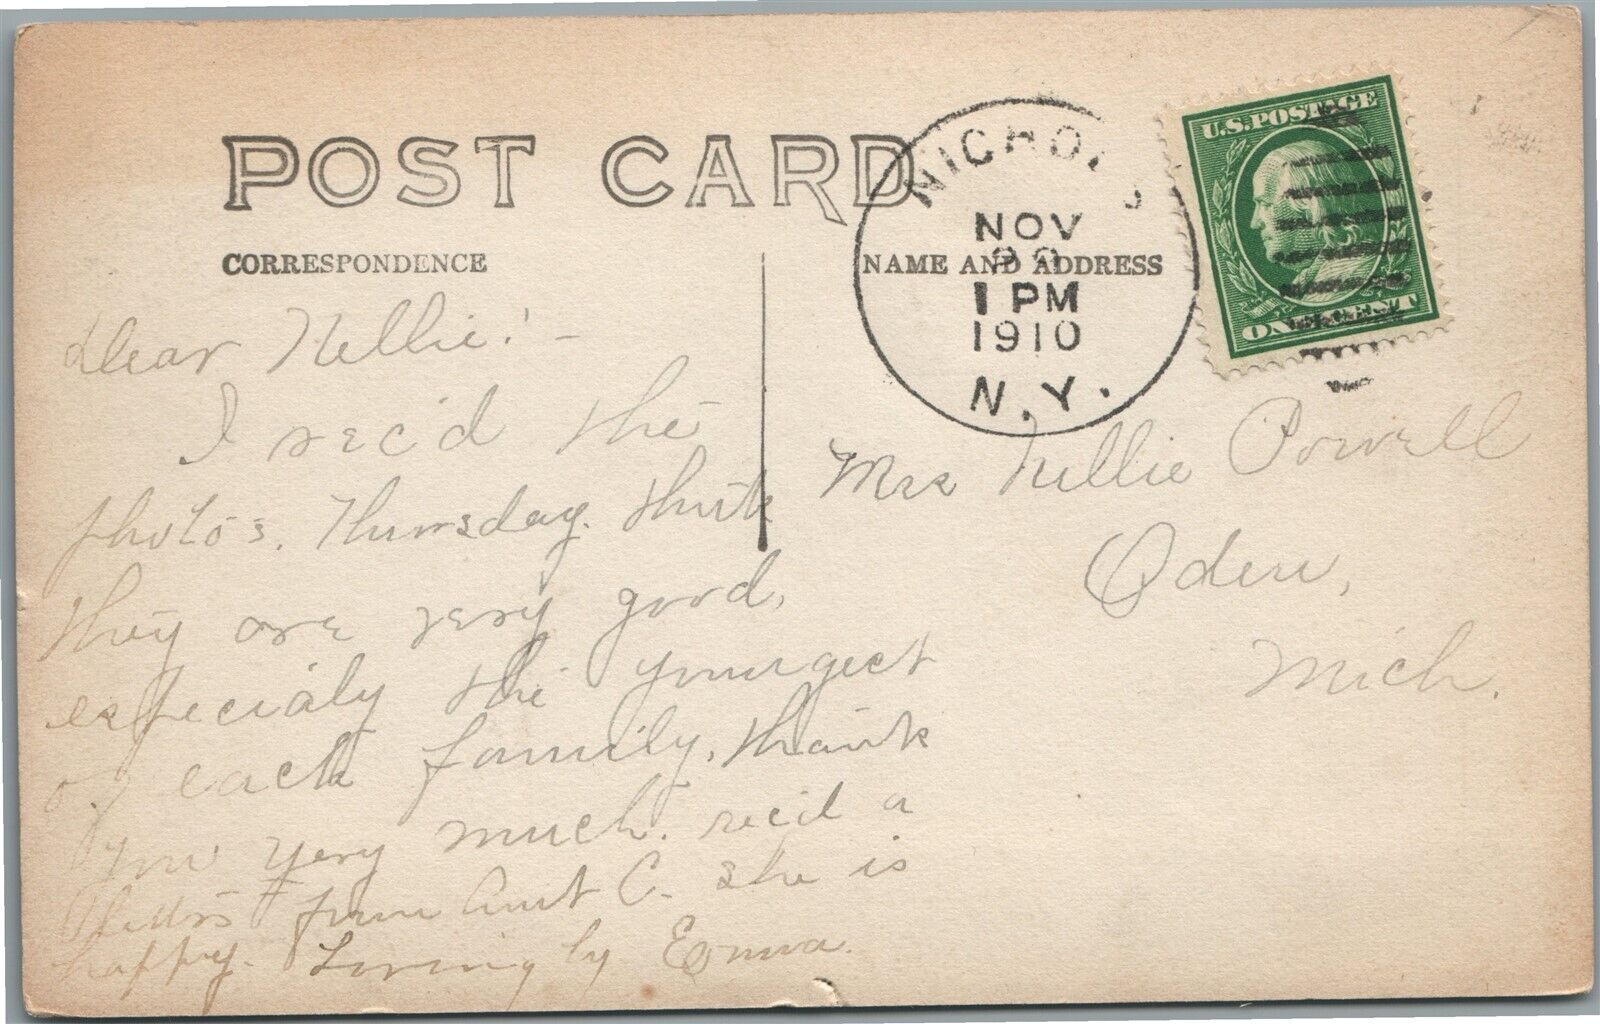 POST CARD
CORRESPONDENCE
NAME AND ADDRESS
NICHOLS
NOV
1 PM
1910
N.Y.
U.S. POSTAGE
ONE CENT
Dear Nellie! -
I rec'd the
photos. Thursday. think
they are very good,
especialy the youngest
of each family. thank
you very much. rec'd a
from Aunt C. she is
happy. Lovingly Emma.
Mrs Nellie Powell
Oden,
Mich.